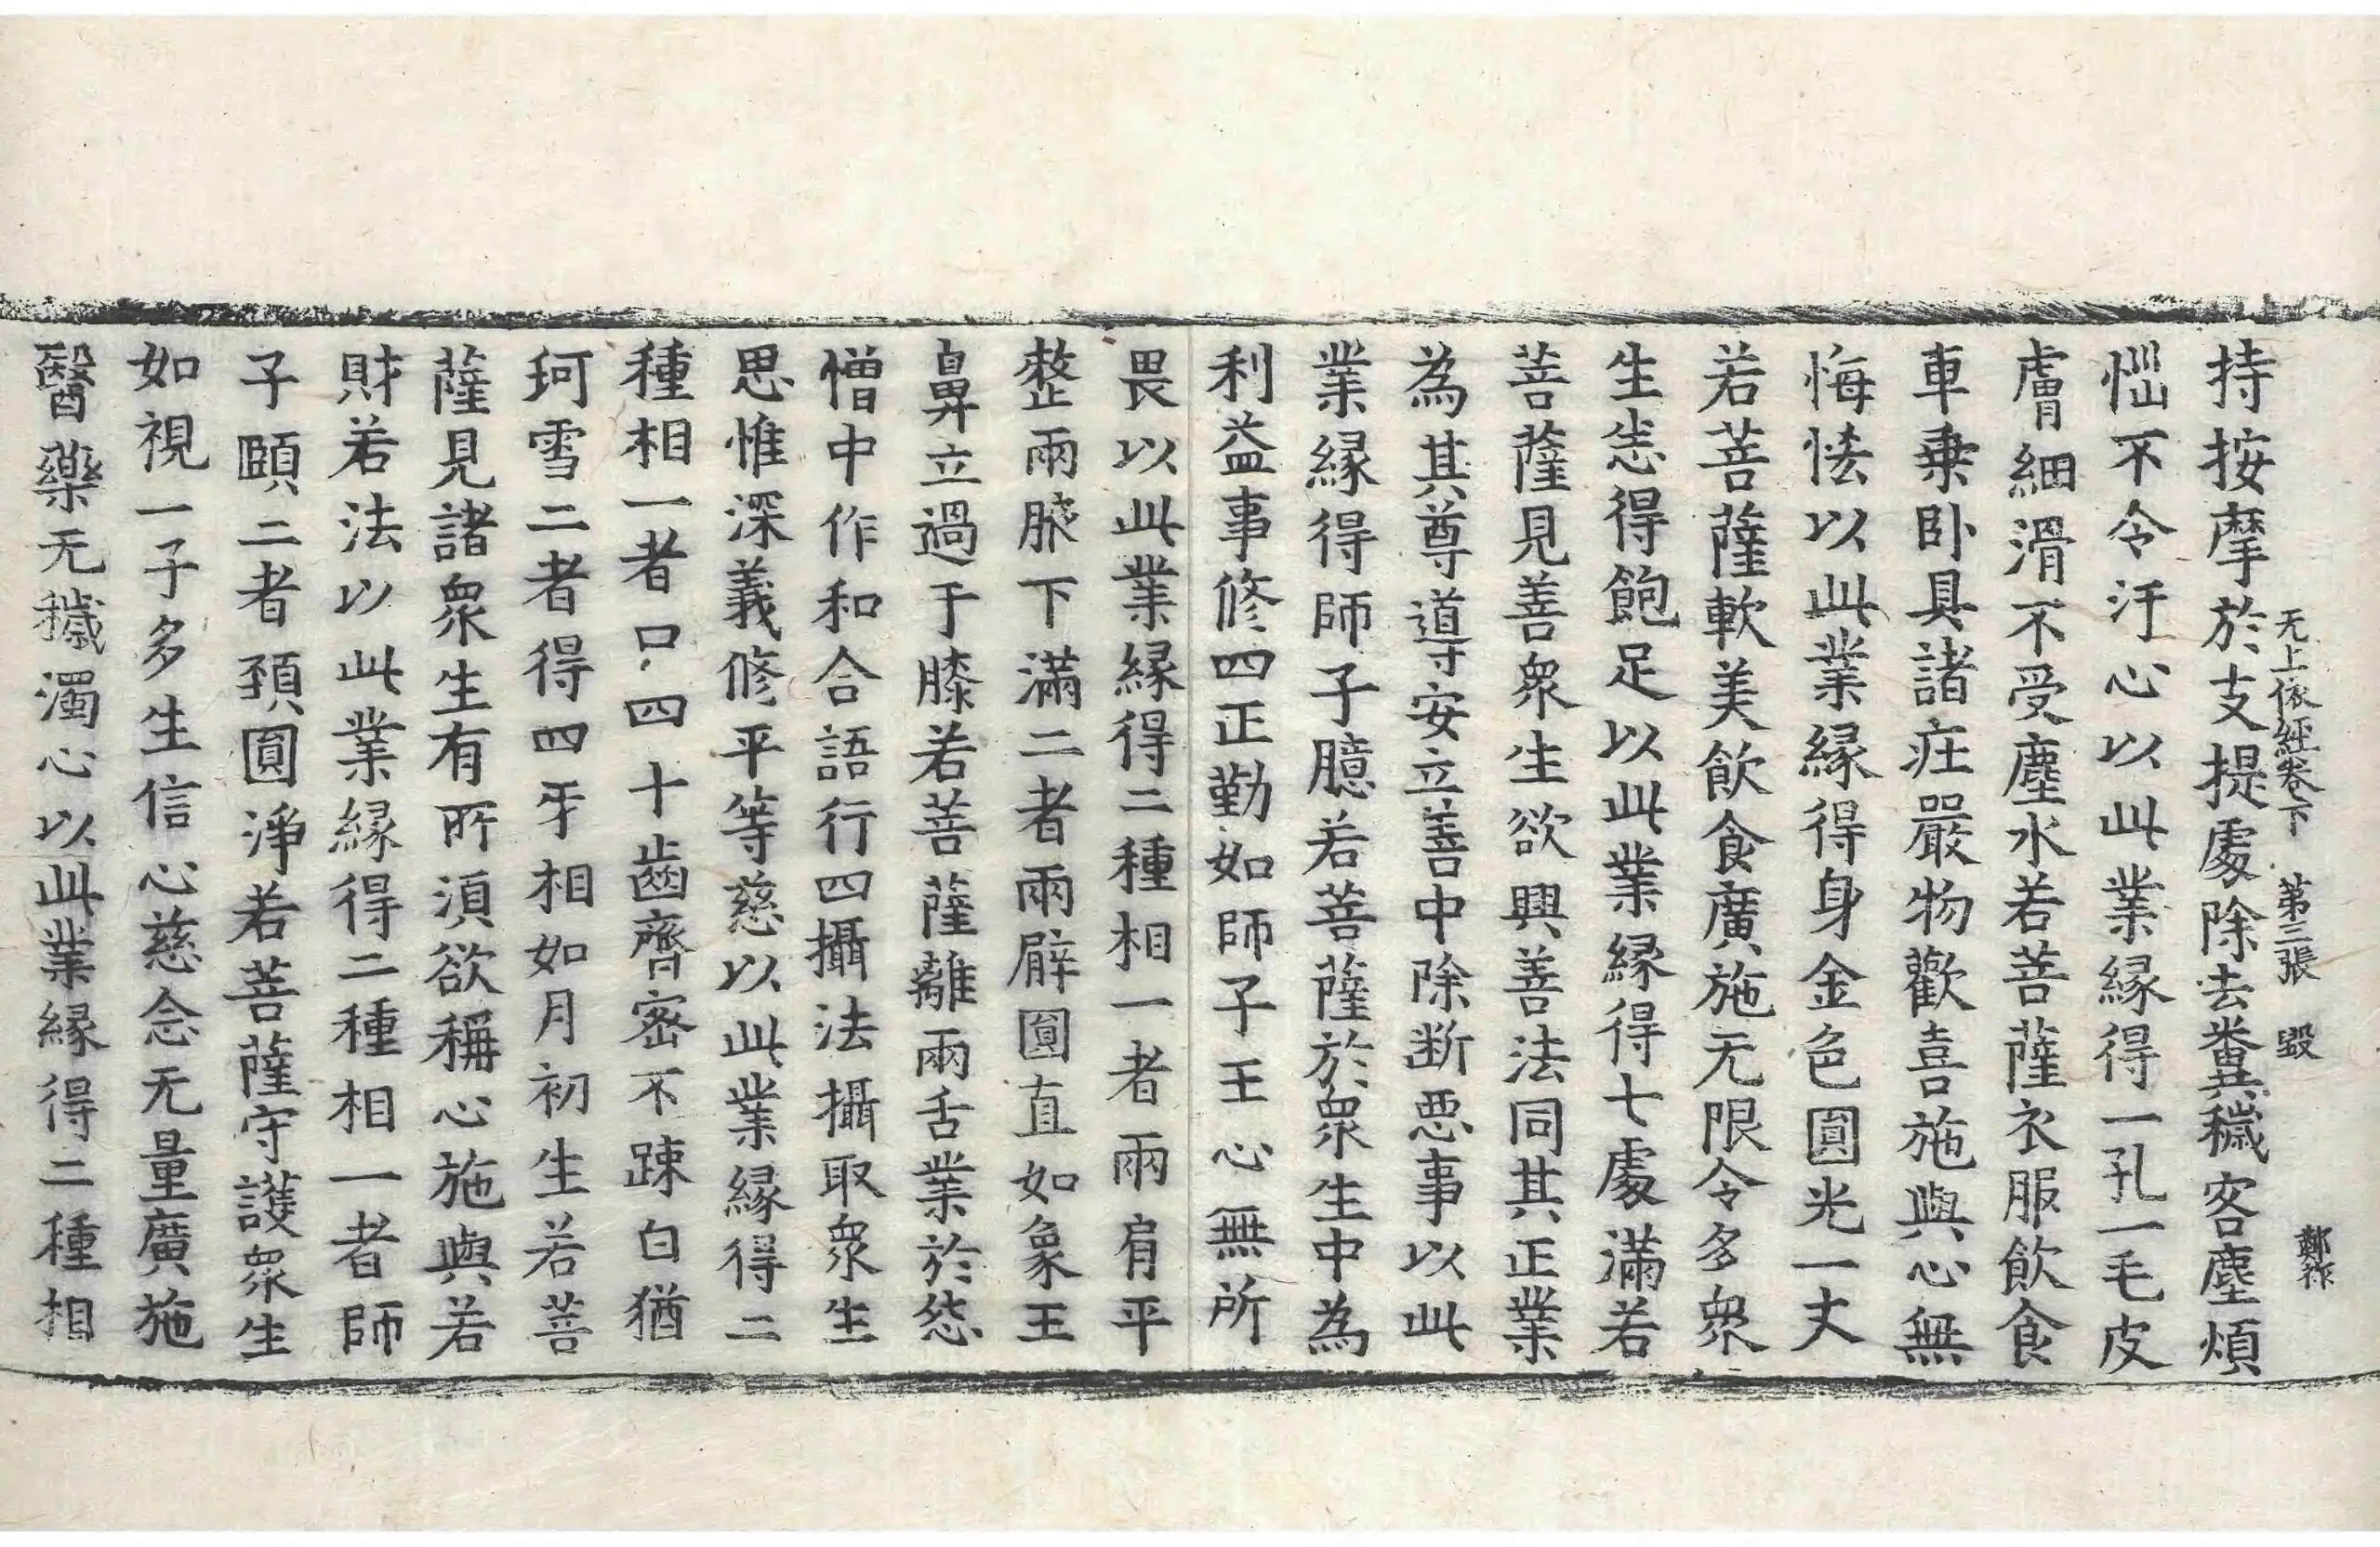 无上依經卷下 第三張 毀 鄭祚
持按摩於支提處除去糞穢客塵煩
惱不令汙心以此業縁得一孔一毛皮
膚細滑不受塵水若菩薩衣服飲食
車乗卧具諸疘嚴物歡喜施與心無
悔恡以此業縁得身金色圓光一丈
若菩薩軟美飲食廣施无限令多衆
生恣得飽足以此業縁得七處滿若
菩薩見善衆生欲興善法同其正業
為其尊導安立善中除断惡事以此
業縁得師子臆若菩薩於衆生中為
利益事修四正勤如師子王心無所
畏以此業縁得二種相一者兩肩平
整兩腋下滿二者兩臂圓直如象王
鼻立過于膝若菩薩離兩舌業於怨
憎中作和合語行四攝法攝取衆生
思惟深義修平等慈以此業縁得二
種相一者口四十齒齊密不踈白猶
珂雪二者得四牙相如月初生若菩
薩見諸衆生有所湏欲稱心施與若
財若法以此業縁得二種相一者師
子頤二者頚圓淨若菩薩守護衆生
如視一子多生信心慈念无量廣施
醫藥无穢濁心以此業縁得二種相